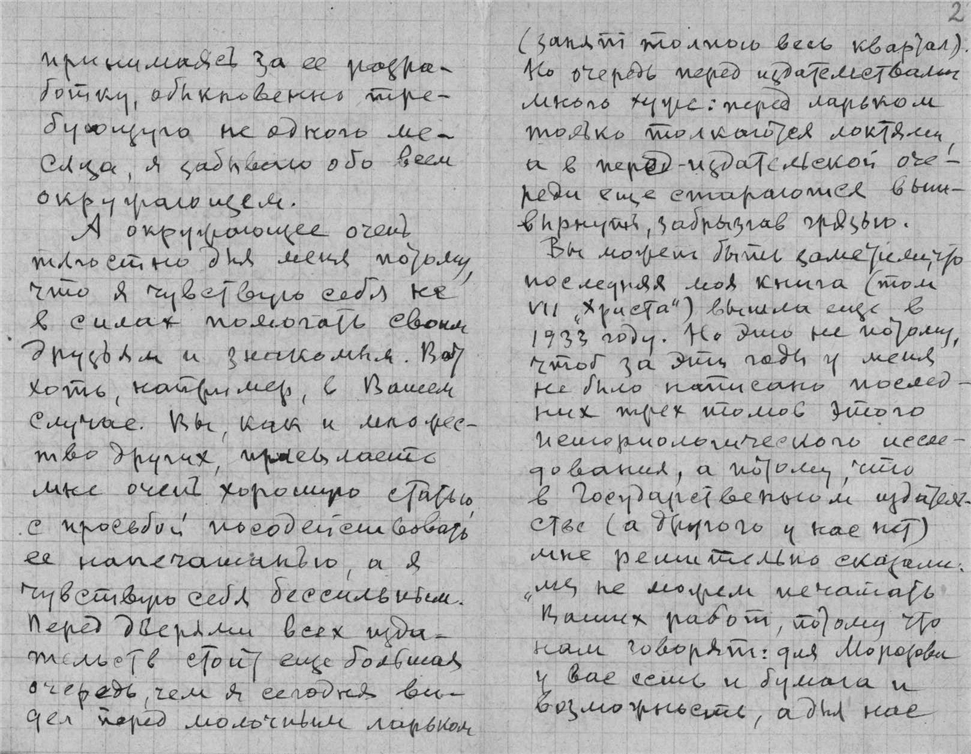 принимаясь за ее разра-
ботку, обыкновенно тре-
бующую не одного ме-
сяца, я забываю обо всем
окружающем.
А окружающее очень
тягостно для меня потому,
что я чувствую себя не
в силах помогать своим
друзьям и знакомым. Вот
хоть, например, в Вашем
случае. Вы, как и множес-
тво других, присылаете
мне очень хорошую статью,
с просьбой посодействовать
ее напечатанью, а я
чувствую себя бессильным.
Перед дверями всех изда-
тельств стоит еще большая
очередь, чем я сегодня ви-
дел перед молочным ларьком
2
(занят толпою весь квартал).
Но очередь перед издательствами
много хуже: перед ларьком
только толкаются локтями,
а в перед-издательской оче-
реди еще стараются выш-
вырнуть, забрызгав грязью.
Вы может быть заметили, что
последняя моя книга (том
VII „Христа") вышла еще в
1933 году. Но это не потому,
чтоб за эти годы у меня
не было написано послед-
них трех томов этого
историологического иссле-
дования, а потому, что
в Государственном издатель-
стве (а другого у нас нет)
мне решительно сказали:
„мы не можем печатать
Ваших работ, потому что
нам говорят: для Морозова
у вас есть и бумага и
возможность, а для нас